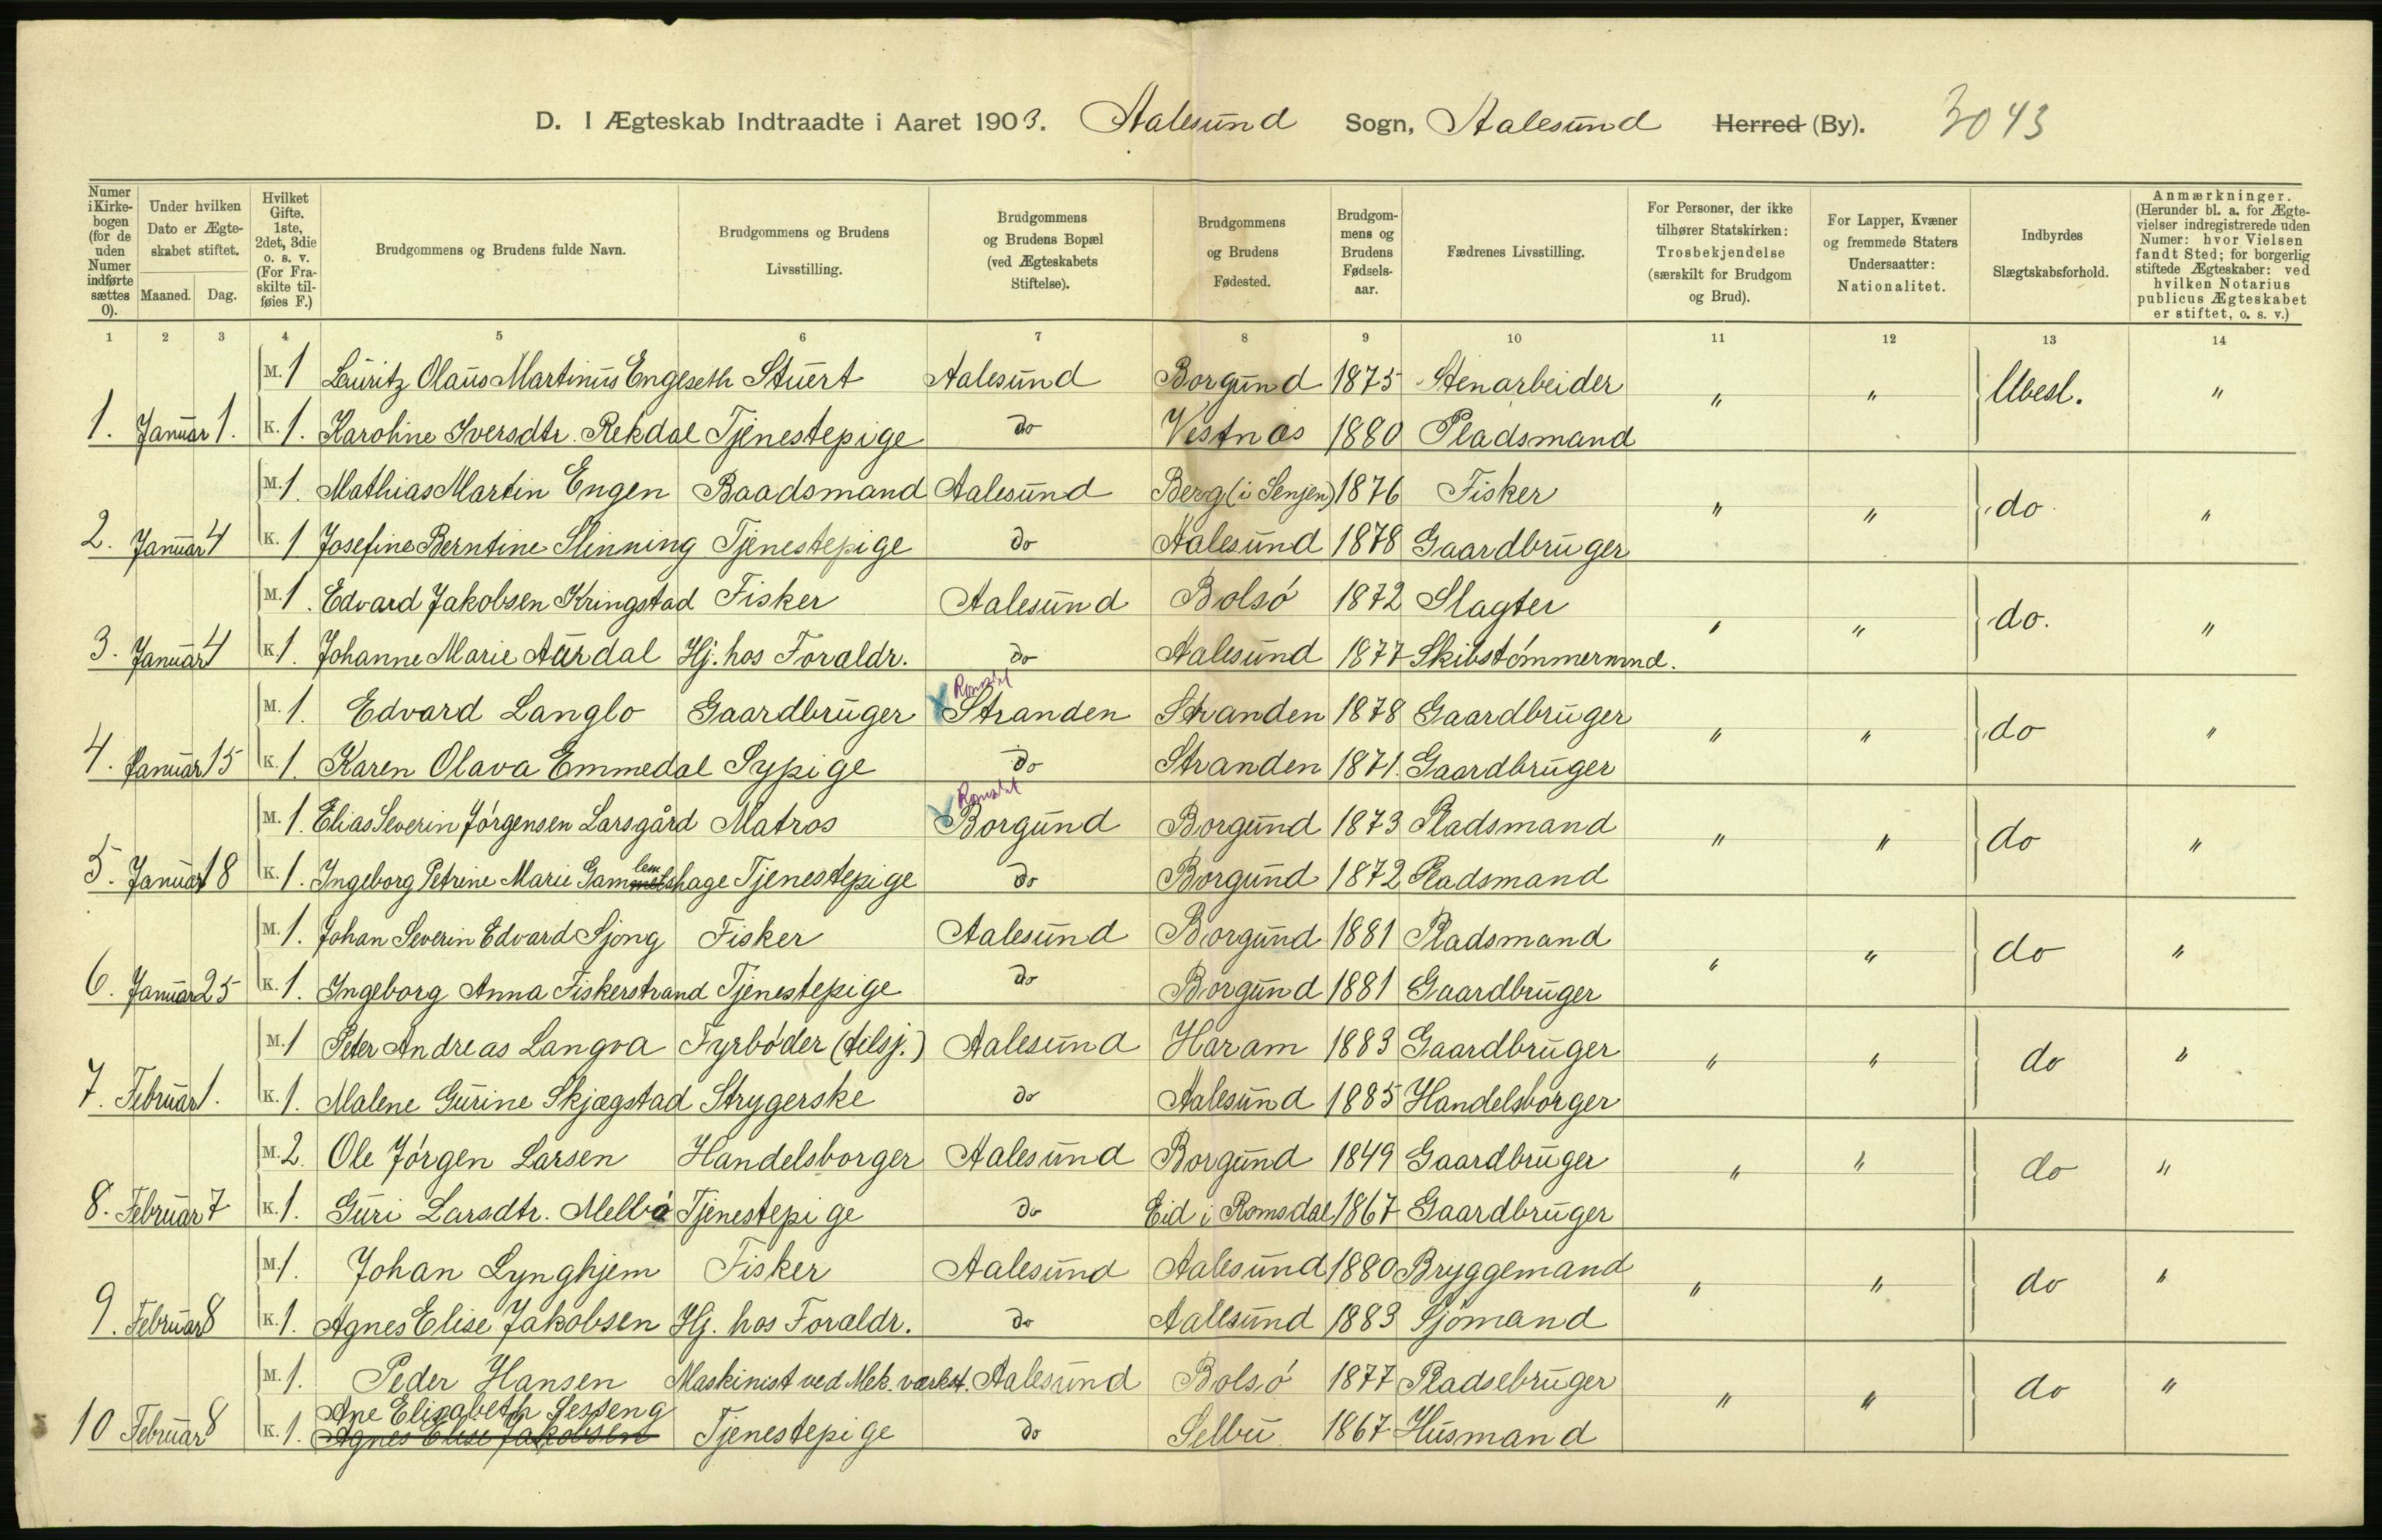 D. I Ægteskab Indtraadte i Aaret 1903. Aalesund Sogn, Aalesund Herred (By). 3043
Numer i Kirkebogen (for de uden Numer indførte sættes 0).
Under hvilken Dato er Ægteskabet stiftet.
Maaned. Dag.
Hvilket Gifte. 1ste, 2det, 3die o. s. v. (For Fraskilte tilføies F.)
Brudgommens og Brudens fulde Navn.
Brudgommens og Brudens Livsstilling.
Brudgommens og Brudens Bopæl (ved Ægteskabets Stiftelse).
Brudgommens og Brudens Fødested.
Brudgommens og Brudens Fødselsaar.
Fædrenes Livsstilling.
For Personer, der ikke tilhører Statskirken: Trosbekjendelse (særskilt for Brudgom og Brud).
For Lapper, Kvæner og fremmede Staters Undersaatter: Nationalitet.
Indbyrdes Slægtskabsforhold.
Anmærkninger. (Herunder bl. a. for Ægtevielser indregistrerede uden Numer: hvor Vielsen fandt Sted; for borgerlig stiftede Ægteskaber: ved hvilken Notarius publicus Ægteskabet er stiftet, o. s. v.)
1 2 3 4 5 6 7 8 9 10 11 12 13 14
M. 1 Lauritz Olaus Martinus Engeseth Stuert Aalesund Borgund 1875 Stenarbeider " " Ubesl. "
1. Januar 1. K. 1. Karoline Iversdtr. Rekdal Tjenestepige do Vestnæs 1880 Pladsmand
M. 1. Mathias Martin Engen Baadsmand Aalesund Berg (i Senjen) 1876 Fisker " " do "
2. Januar 4 K. 1 Josefine Berntine Slinning Tjenestepige do Aalesund 1878 Gaardbruger
M. 1. Edvard Jakobsen Kringstad Fisker Aalesund Bolsó 1872 Slagter " " do. "
3. Januar 4 K 1. Johanne Marie Aurdal Hj. hos Foraldr. do Aalesund 1877 Skibstómmermnd.
Romsdal
M. 1. Edvard Langlo Gaardbruger Stranden Stranden 1878 Gaardbruger " " do "
4. Januar 15 K. 1. Karen Olava Emmedal Sypige do Stranden 1871. Gaardbruger
Romsdal
M. 1. Elias Severin Jórgensen Larsgård Matros Borgund Borgund 1873 Pladsmand " " do "
5. Januar 18 K. 1. Ingeborg Petrine Marie Gamlemshage Tjenestepige do Borgund 1872 Pladsmand
M. 1. Johan Severin Edvard Sjong Fisker Aalesund Borgund 1881 Pladsmand " " do "
6. Januar 25 K. 1. Ingeborg Anna Fiskerstrand Tjenestepige do Borgund 1881 Gaardbruger
M. 1 Peter Andreas Langva Fyrbóder (tilsj.) Aalesund Haram 1883 Gaardbruger " " do "
7. Februar 1. K. 1. Malene Gurine Skjægstad Strygerske do Aalesund 1885 Handelsborger
M. 2. Ole Jórgen Larsen Handelsborger Aalesund Borgund 1849 Gaardbruger " " do "
8. Februar 7 K. 1. Guri Larsdtr. Melbó Tjenestepige do Eid i Romsdal 1867 Gaardbruger
M. 1. Johan Lynghjem Fisker Aalesund Aalesund 1880 Bryggemand " " do "
9. Februar 8 K. 1. Agnes Elise Jakobsen Hj. hos Foraldr. do Aalesund 1883 Sjómand
M. 1. Peder Hansen Maskinist ved Mek. værkst. Aalesund Bolsó 1877 Pladsebruger " " do "
Ane Elisabeth Sesseng
10 Februar 8 K. 1. Agnes Elise Jakobsen Tjenestepige do Selbu 1867 Husmand